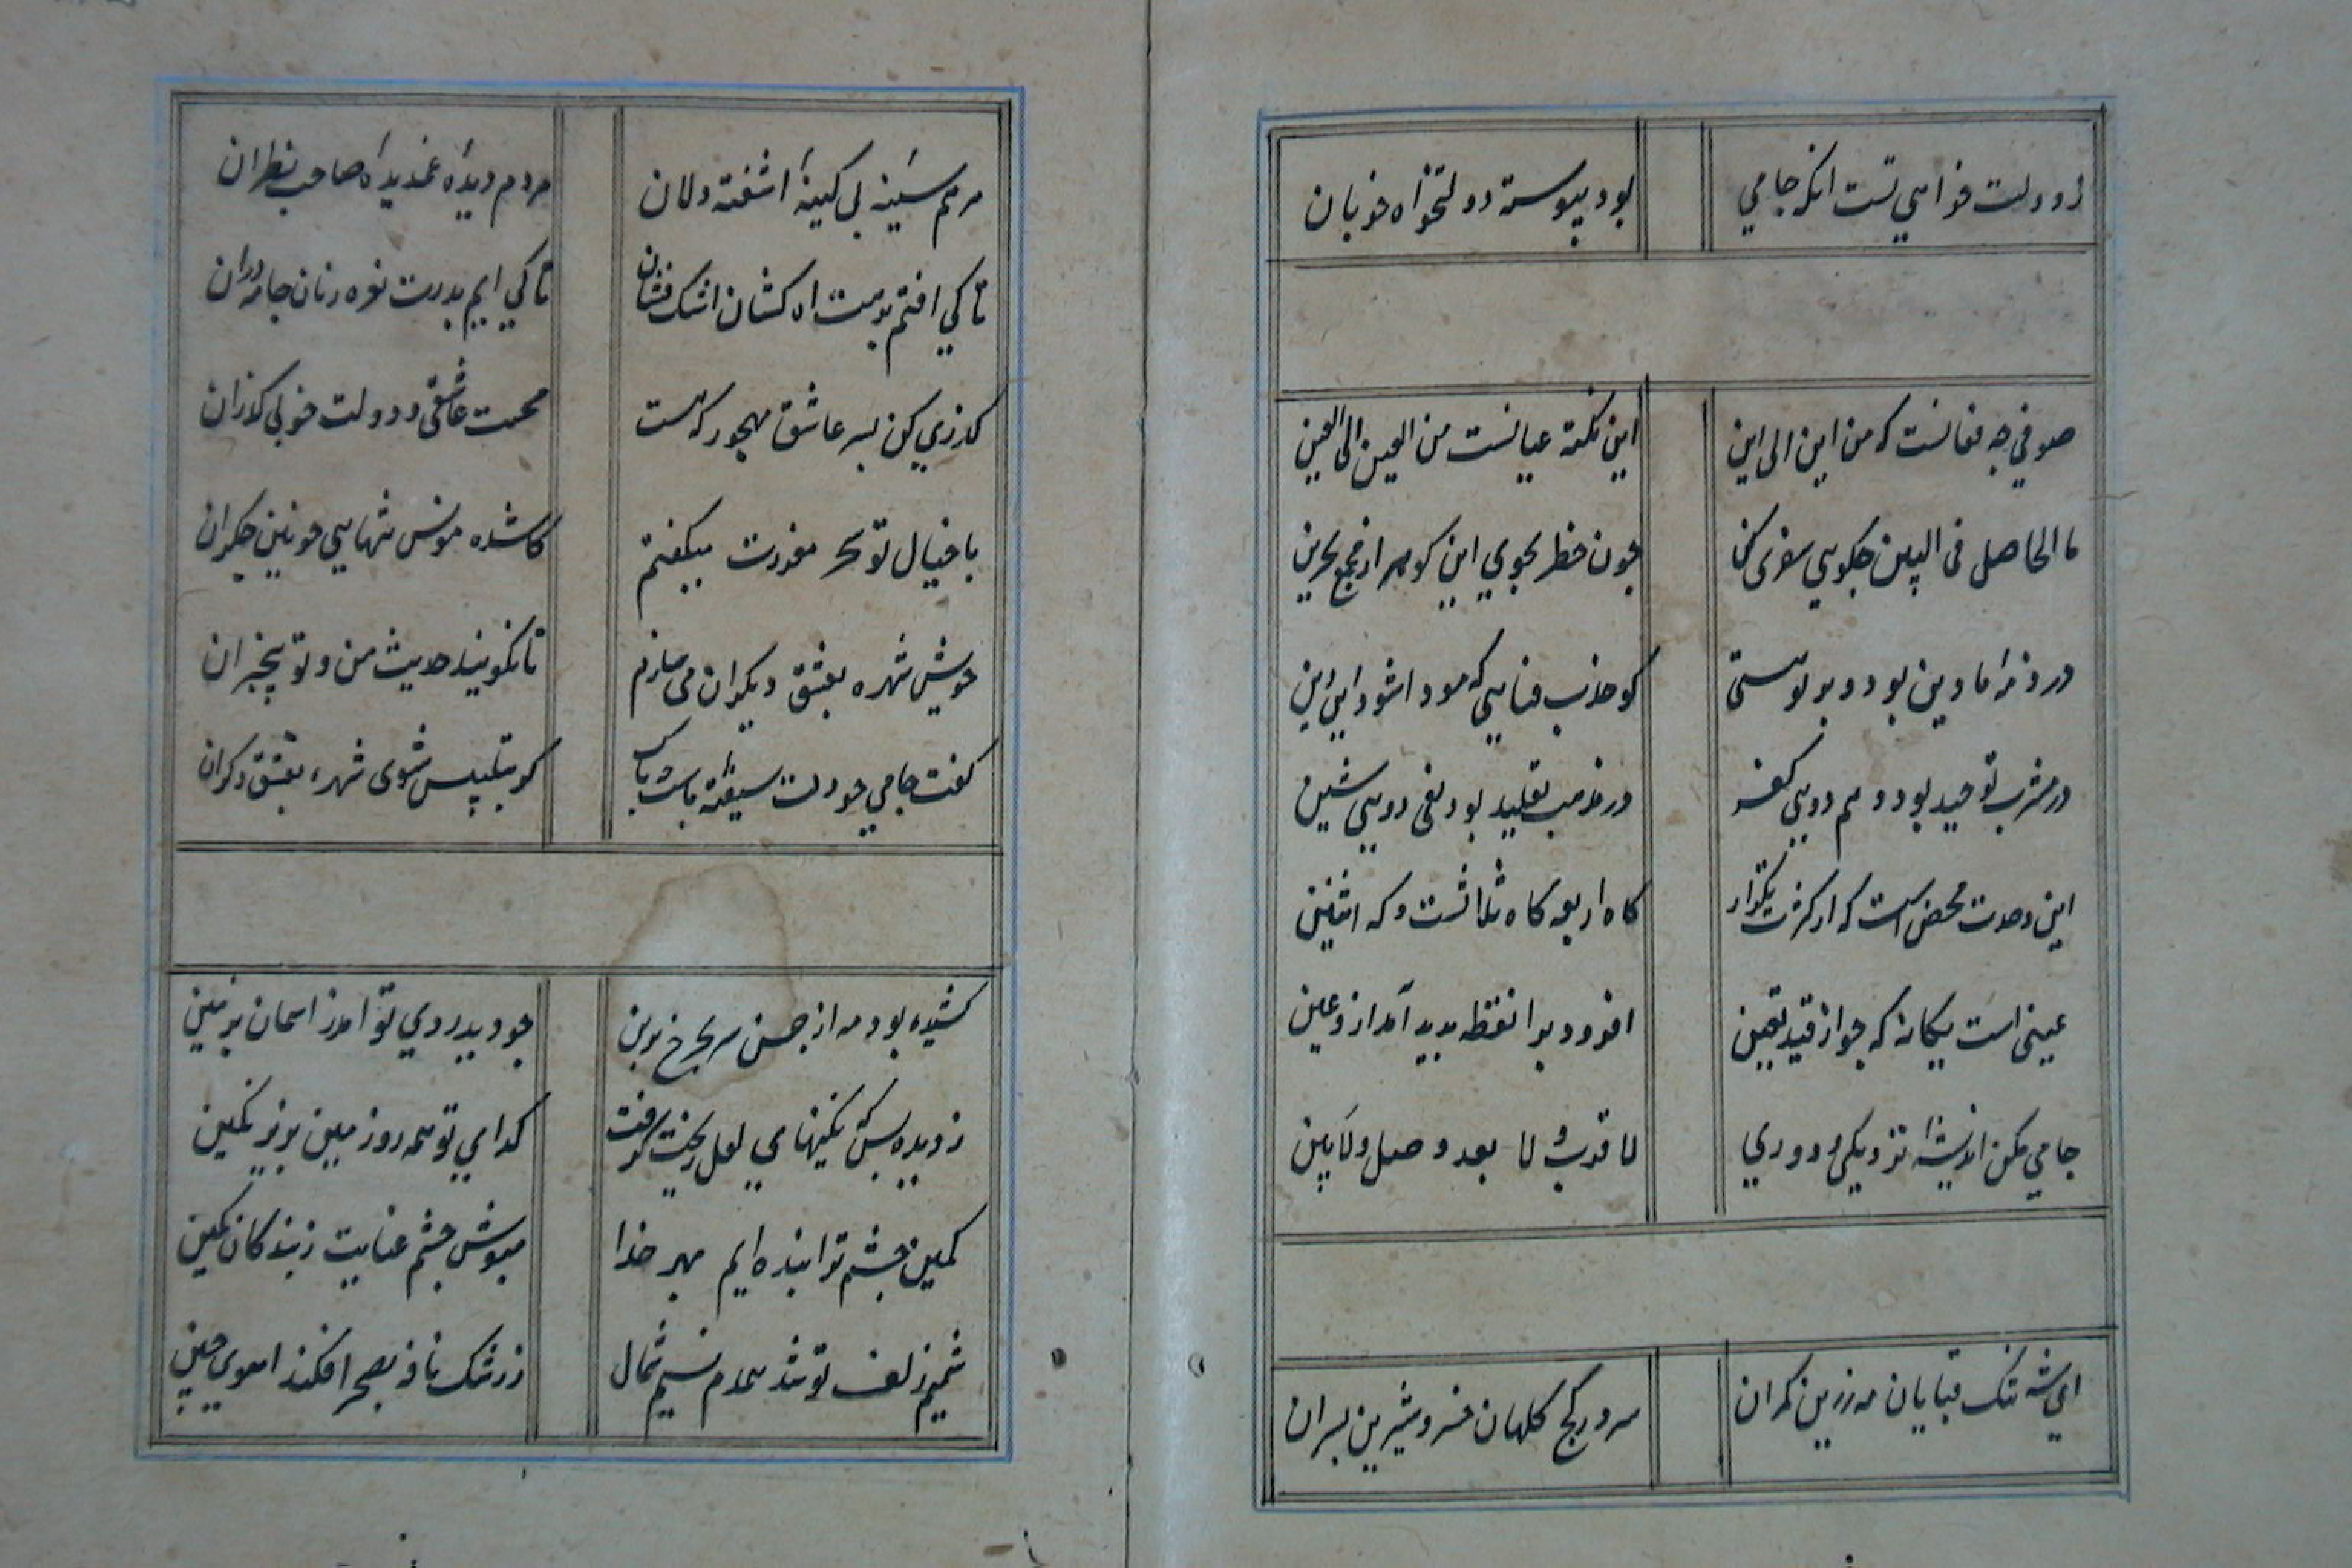 ز دولت خواهی تست انکه جامی بود پیوسته دولتخواه خوبان
صوفی چه فغانست که من این الی این این نکته عیانست من العین الی العین
ما الحاصل فی البین جکویی سفری کن چون خضر بجوی این کوهر از مجمع بحرین
در ذمه ما دین بود دوبر تو هستی کو جذب فنایی که مودا شود این دین
در مشرب توحید بود وهم دویی کفر در مذهب تقلید بود نفی دویی شین
این وحدت محض است که از کثرت تکرار کاه اربعه کاه ثلاثست و که اثنین
عینی است یکانه که چو از قید تعین افزود برا نقطه بدید آمد ازو غین
جامی مکن اندیشه نزدیکی و دوری لا قرب و لا بعد و وصل و لا بین
ای شه تنک قبایان مه زرین کمران سرور کج کلهان خسرو شیرین پسران
مرهم سینه بی کینهٔ اشفته دلان مردم دیده غمدیدهٔ صاحب نظران
تا کی افتم برهت اه کشان اشک فشان تا کی ایم بدرت نعره زنان جامه دران
کذری کن بسر عاشق مهجور که هست محنت عاشقی و دولت خوبی کذران
با خیال تو سحر معذرت میکفتم کاشده مونس تنهایی خونین جکران
خویش شهره بعشق دیکران می سازم تا نکویند حدیث من و تو بیخبران
کفت جامی چو دلت شیفته ماست چه باک کر بتلبیس شوی شهره بعشق دکران
کشیده بود مه از حسن سر بجرخ برین جو دید روی تو امد ز اسمان بزمین
ز دیده بس که نکینهای لعل ریخت کرفت کدای تو همه روز زمین بزیر نکین
کمین جشم ترا بنده ایم بهر خدا مبوش جشم عنایت ز بندکان کمین
شمیم زلف تو شد همدم نسیم شمال ز رشک نافه بصحرا فکند اهوی چین